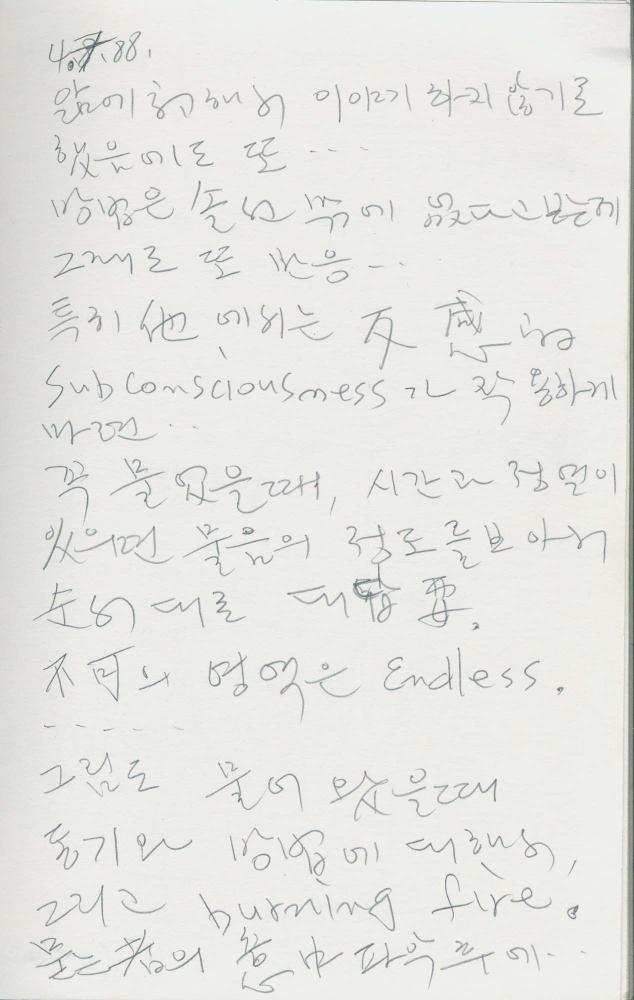 4.7.88.
앎에 관해서 이야기 하지 않기로
했음에도 또 ...
방법은 솔선 밖에 없다고 보는데
그대로 또 반응 ...
특히 他에서는 反感的
subconsciousness가 작용하게
마련 ..
꼭 물었을때, 시간과 정열이
있으면 물음의 정도를 보아서
순서대로 대답 要.
不可의 영역은 Endless.
- - - - -
그림도 물어 왔을때
동기와 방법에 대해서,
그리고 burning fire.
묻는 者의 意中 파악 후에 ..